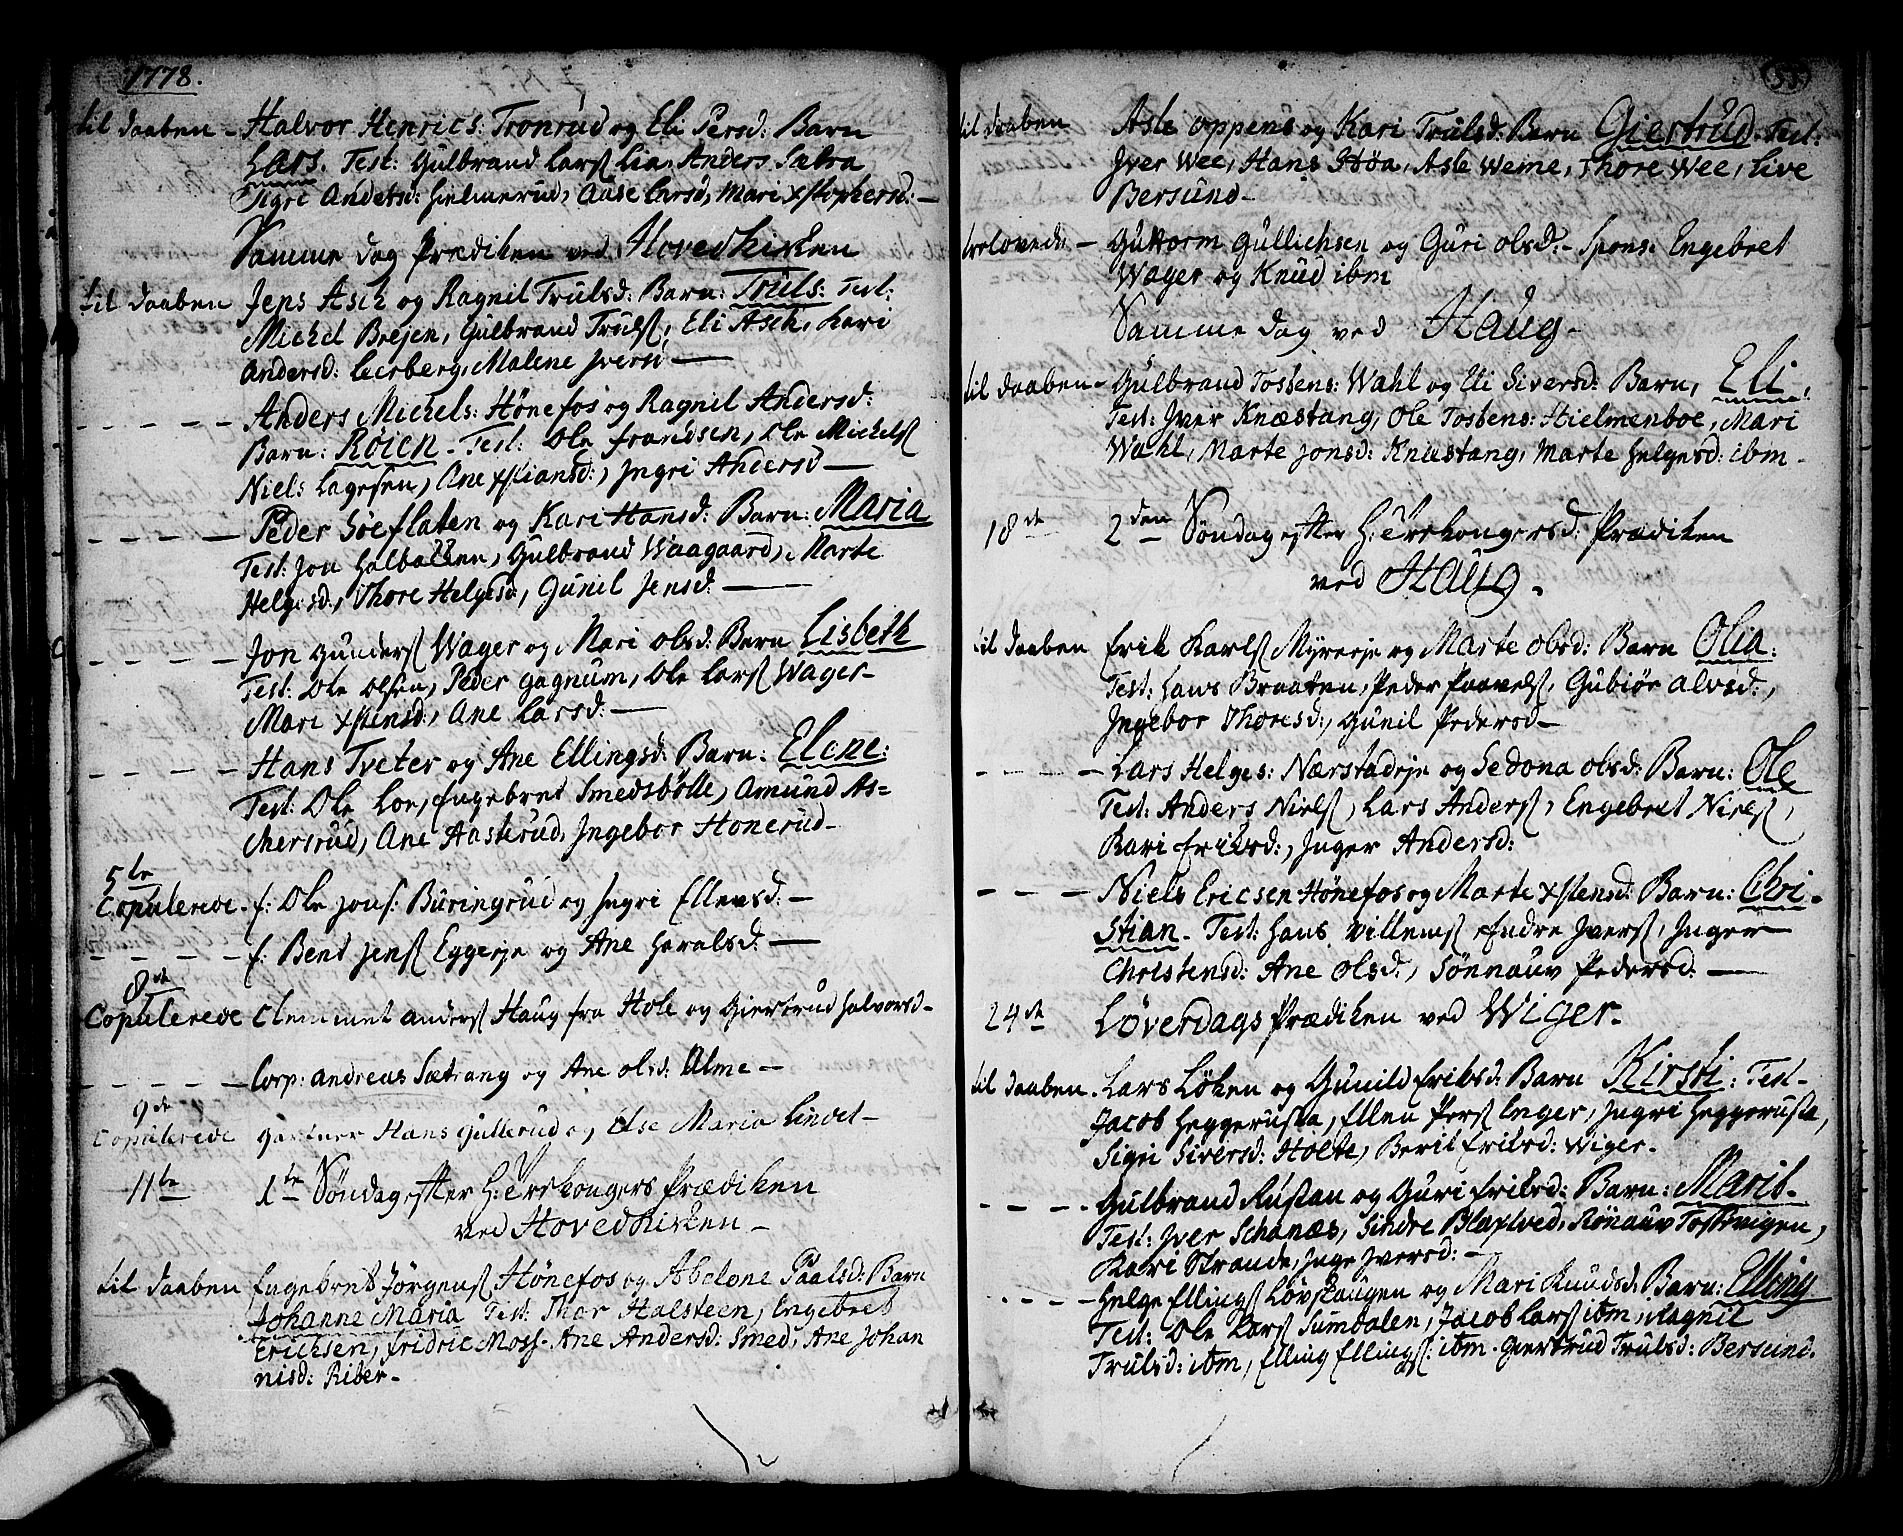 1778.
til daaben - Halvor Henrics: Tronrud og Eli Persd: Barn
Lars. Test: Gulbrand Lars Lia, Anders Satra
Sigri Andersd: Hielmerud, Aase Larsd, Mari Xstophersd: -
Samme dag Prædiken ved Hovedkirken
til daaben Jens Asch og Ragnil Trulsd: Barn: Truls: Test:
Michel Brejen, Gulbrand Truls, Eli Asch, Kari
Andersd: Leerberg, Malene Jversd -
- - - - Anders Michels: Hönefos og Ragnil Andersd:
Barn: Röien - Test: Ole Frandsen, Ole Michels
Niels Lagesen, Ane Xstiansd:, Jngri Andersd -
- - - - Peder Söeflaten og Kari Hansd: Barn: Maria
Test: Jon Halbakken, Gulbrand Waagaard, Marte
Helgesd, Thore Helgesd, Gunil Jensd. -
- - - - Jon Gunders Wager og Mari Olsd: Barn Lisbeth
Test: Ole Olsen, Peder Gagnum, Ole Lars Wager -
Mari Xstensd:, Ane Larsd: -
- - - - Hans Tveter og Ane Ellingsd: Barn: Elene:
Test: Ole Loe, Engebret Smedsbölle, Amund As=
chersrud, Ane Aasterud, Jngebor Honerud -
5te
Copulerede - f: Ole Jons: Buringrud og Jngri Ellensd: -
- - - - f: Bent Jens Eggerje og Ane Haralsd: -
8de
Copulerede Clemmet Anders Haug fra Hole og Giertrud Halvorsd -
- - - - Corp: Andreas Sætrang og Ane Olsd: Alme -
9de
Copulerede Gartner Hans Gullerud og Else Maria Lindet -
11te 1te Söndag efter H: 3 Kongers Prædiken
ved Hovedkirken -
til daaben Engebret Jörgens Hönefos og Abelone Paalsd: Barn
Johanne Maria Test: Thor Halsteen, Engebret
Ericksen, Fridric Moss. Ane Andersd: Smed, Ane Johan
nisd: Riber -
55
til daaben Asle Oppens og Kari Trulsd: Barn Giertrud - Test:
Jver Wee, Hans Höa, Asle Weme, Thore Wee, Live
Bersund -
trolovede - Guttorm Gullichsen og Guri Olsd: - Spons: Engebret
Wager og Knud ibm
Samme dag ved Haug -
til daaben - Gulbrand Tostens: Wahl og Eli Siversd: Barn, Eli,
Test: Jver Knæstang, Ole Tostens: Hielmenboe, Mari
Wahl, Marte Jonsd: Knæstang, Marte Helgesd: ibm -
18de 2den Söndag efter H: 3 Kongersd: Prædiken
ved Haug -
til daaben Erik Karls Myrerje og Marte Olsd: Barn Olia:
Test: Laws Braaten, Peder Paavels, Gubiör Alvsd:,
Jngebor Thoresd:, Gunil Pedersd -
- - - - Lars Helges: Nærstadeje og Sedona Olsd: Barn: Ole
Test: Anders Niels, Lars Anders, Engebret Niels,
Kari Eriksd:, Jnger Andersd:
- - - Niels Ericsen Hönefos og Marte Xstensd: Barn: Chri -
stian - Test: Hans Villems Endre Jvers, Jnger
Christensd: Ane Olsd:, Sönnauv Pedersd: -
24de Löverdags Prædiken ved Wiger -
til daaben. Lars Löken og Gunild Eriksd: Barn Kirsti: Test -
Jacob Heggerusta, Ellen Pers Enger, Jngri Heggerusta,
Sigri Siversd: Holte, Beril Eriksd: Wiger -
- - - - Gulbrand Rustan og Guri Eriksd: Barn: Marit -
Test: Jver Schanæs, Sindre Blaxtved, Rönauv Tossevigen,
Kari Strande, Jnge Jversd: -
- - - - Helge Ellings Lövskaugen og Mari Knudsd: Barn: Elling
Test: Ole Lars Sumdalen, Jacob Lars ibm, Ragnil
Trulsd: ibm, Elling Ellings: ibm - Giertrud Trulsd: Bersund.